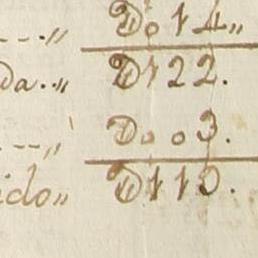 ---„ Do14„
da..„ D122.
---„ Do03.
ido„ D119.